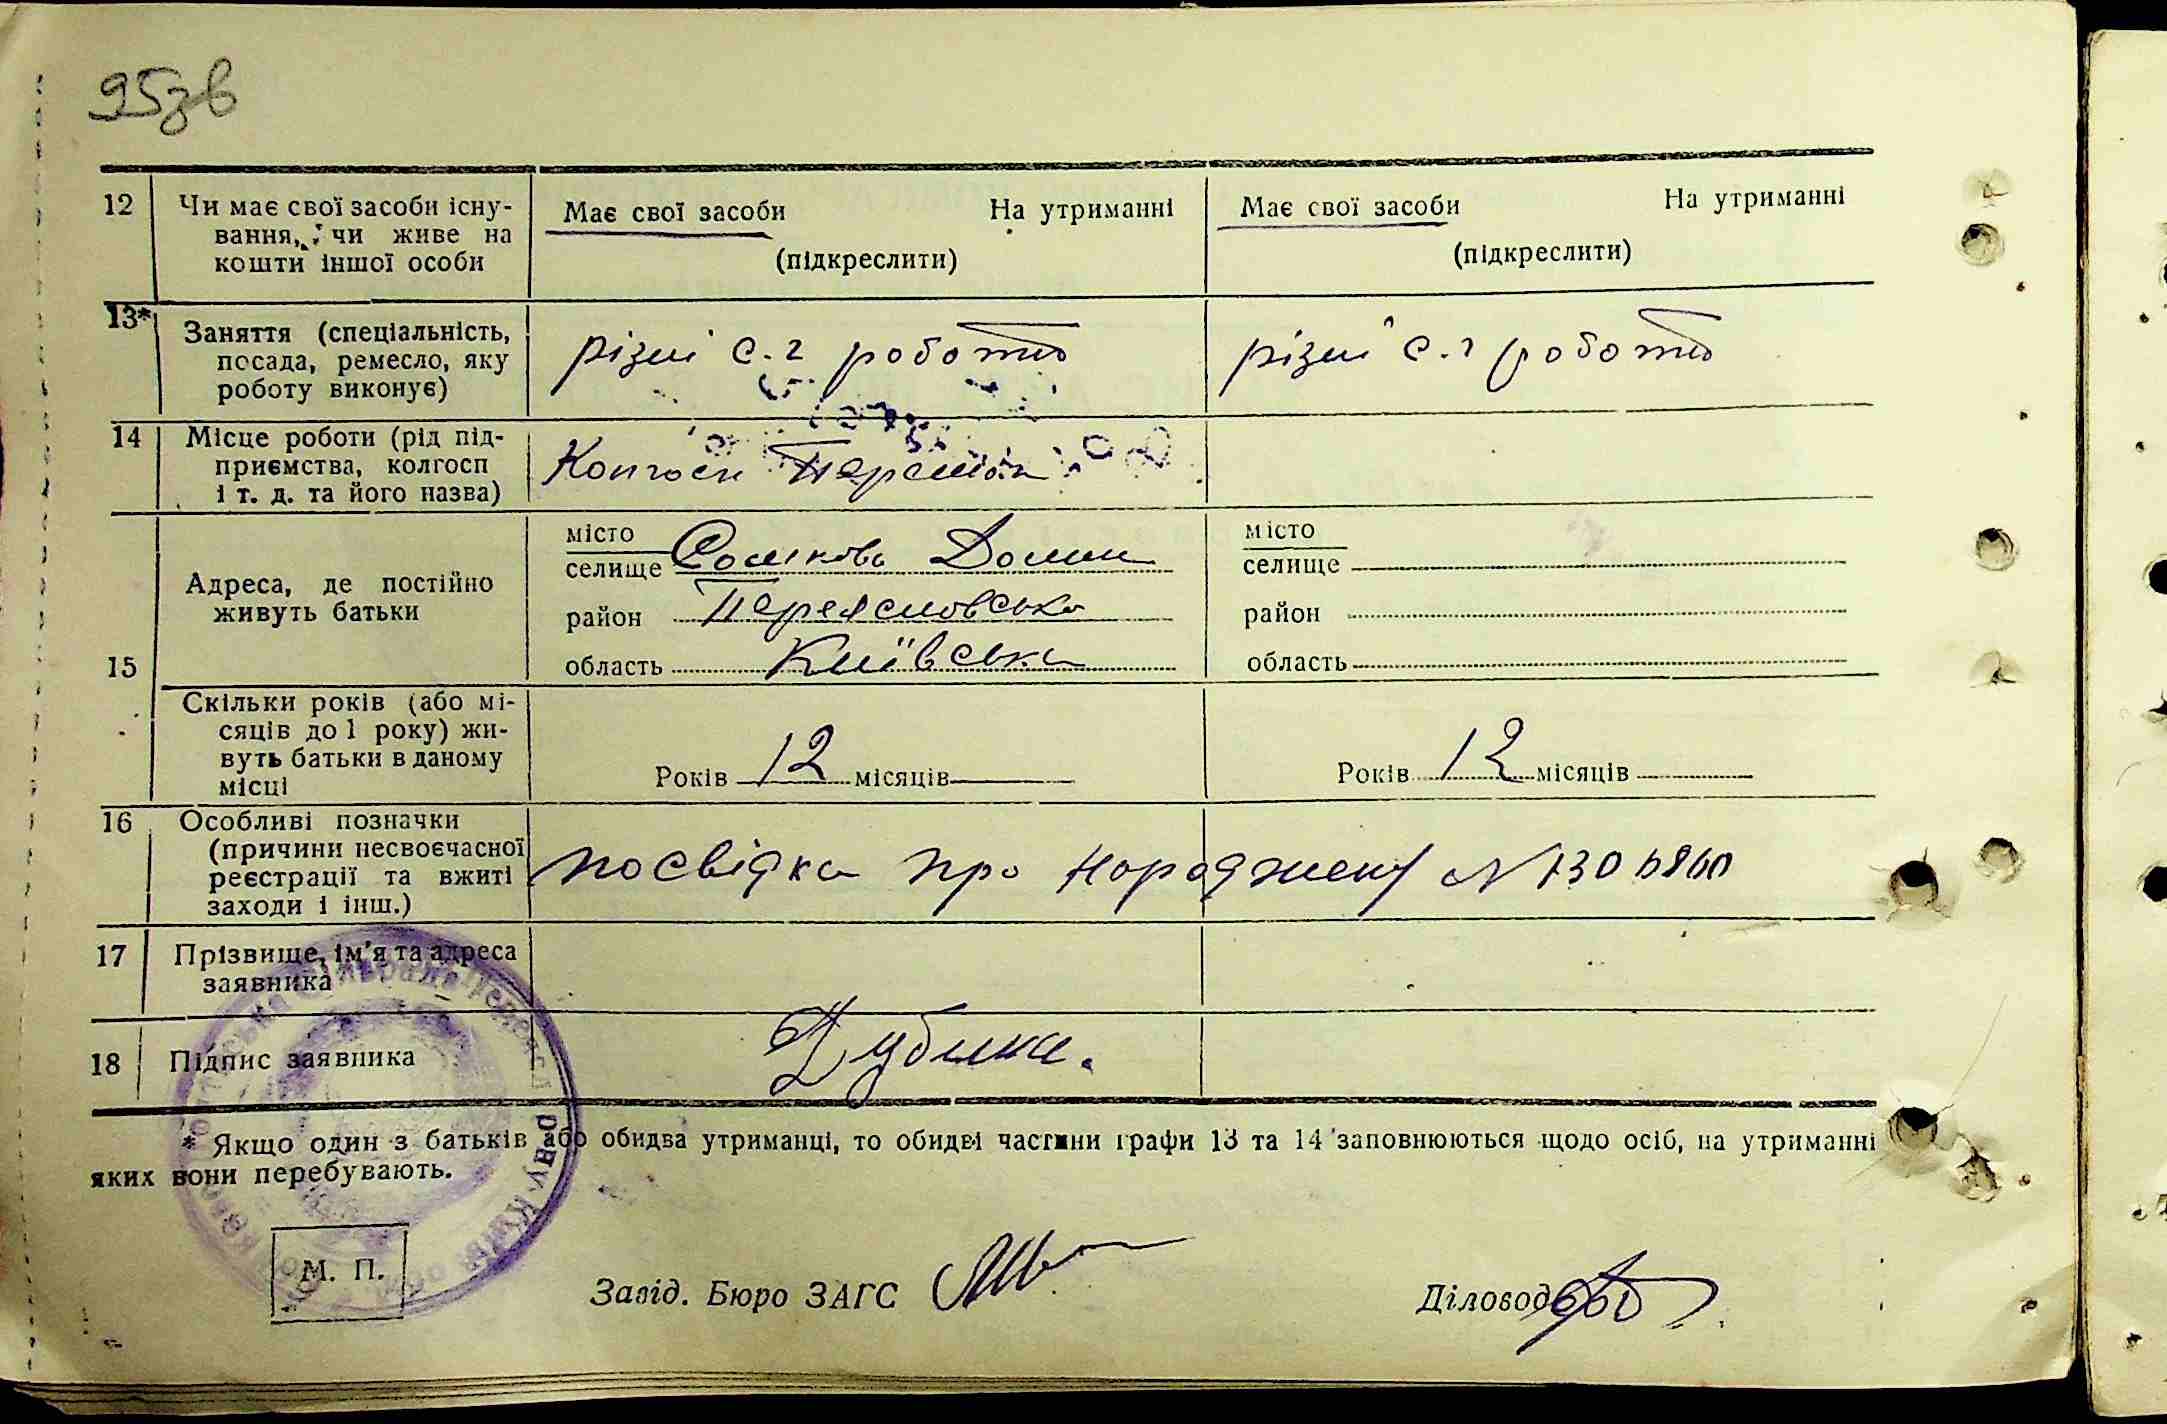 95зв
12 Чи має свої засоби існу- Має свої засоби На утриманні Має свої засоби На утриманні
вання, чи живе на
кошти іншої особи (підкреслити) (підкреслити)
13* Заняття (спеціальність, різні с.г роботи різні с.г роботи
посада, ремесло, яку
роботу виконує)
14 Місце роботи (рід під- Колгосп
приємства, колгосп
і т. д. та його назва)
місто місто
селище Сомкова Долин селище
Адреса, де постійно
живуть батьки
район Переяславська район
15 область Київська область
Скільки років (або мі-
сяців до 1 року) жи-
вуть батьки в даному
місці Років 12 місяців Років 12 місяців
16 Особливі позначки
(причини несвоєчасної
реєстрації та вжиті
заходи і інш.) посвідка про народжен N
17 Прізвище, ім'я та адреса
заявника
18 Підпис заявника Дубина.
* Якщо один з батьків або обидва утриманці, то обидві частини графи 13 та 14 заповнюються щодо осіб, на утриманні
яких вони перебувають.
М. П.
Завід. Бюро ЗАГС Діловод